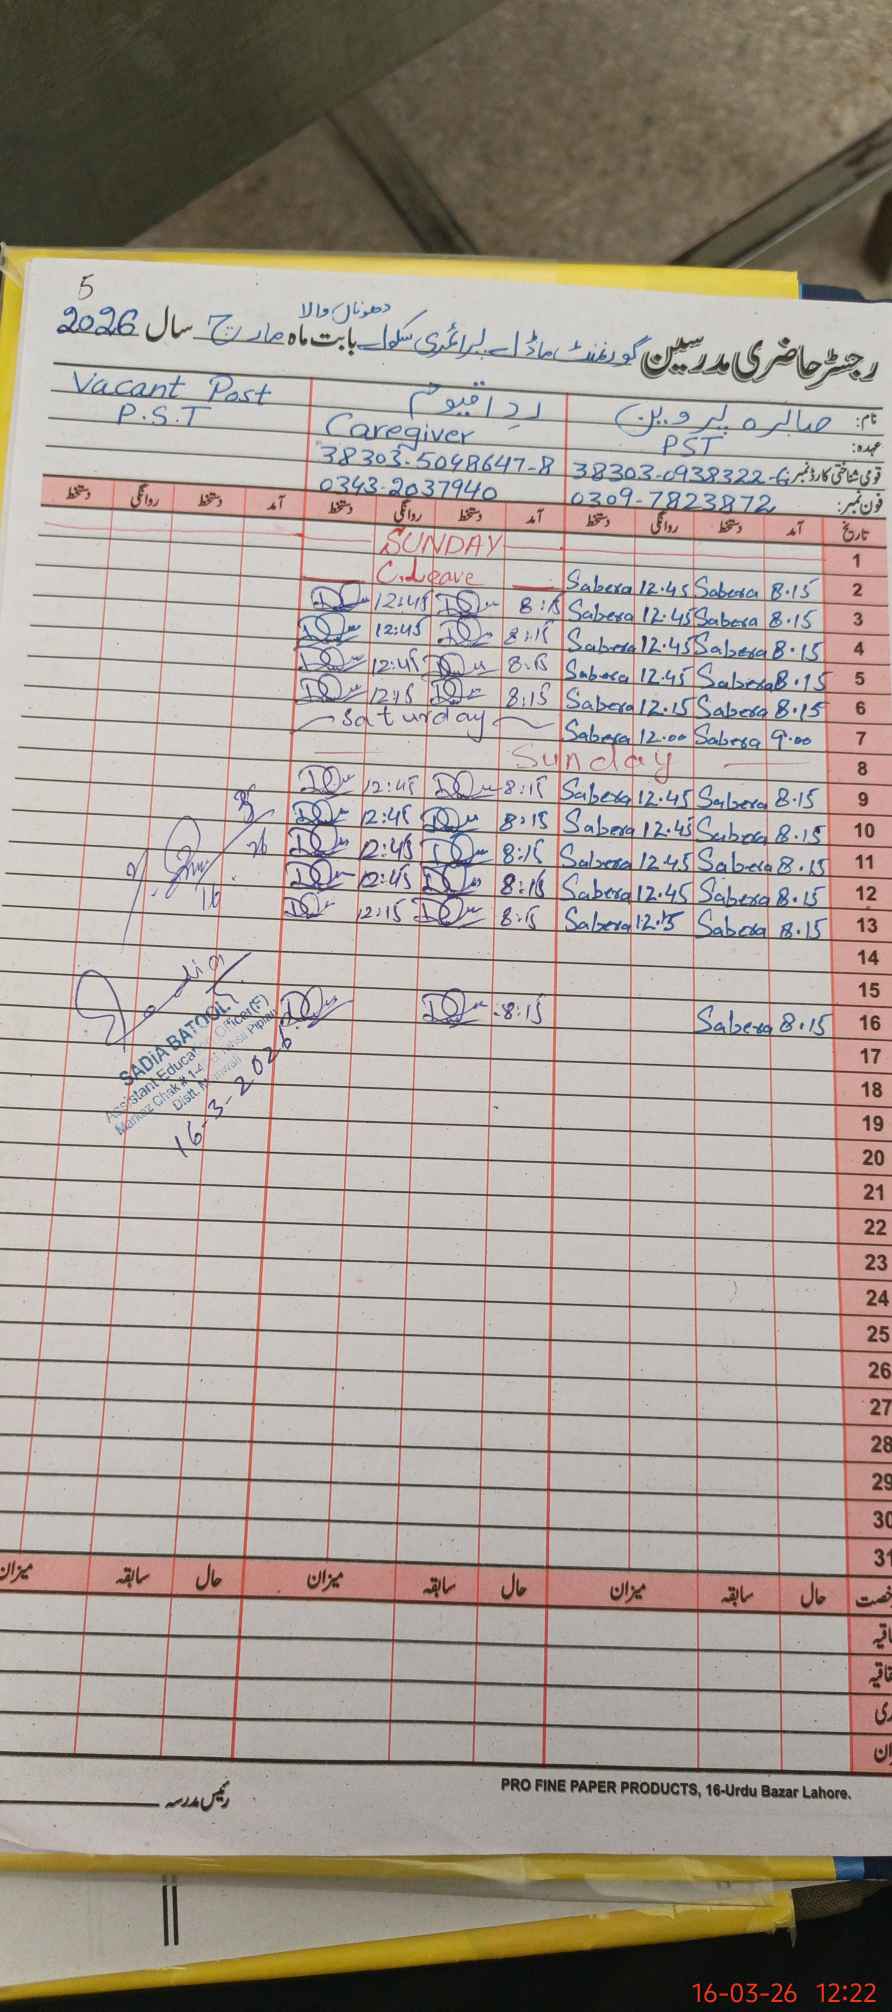 5
دھوناں والا
رجسٹر حاضری مدرسین گورنمنٹ ماڈل پرائمری سکول بابت ماہ مارچ سال 2026
نام: صابرہ پروین ردا قیوم Vacant Post
عہدہ: PST Caregiver P.S.T
قومی شناختی کارڈ نمبر 38303-0938322-6 38303-5048647-8
فون نمبر: 0309-7823872 0343-2037940
تاریخ آمد دستخط روانگی دستخط آمد دستخط روانگی دستخط آمد دستخط روانگی دستخط
1 SUNDAY
2 8.15 Sabera 12.45 Sabera C.Leave
3 8.15 Sabera 12.45 Sabera 8:15 12:45
4 8.15 Sabera 12.45 Sabera 8:15 12:45
5 8.15 Sabera 12.45 Sabera 8:15 12:45
6 8.15 Sabera 12.15 Sabera 8:15 12:15
7 9.00 Sabera 12.00 Sabera Saturday
8 Sunday
9 8.15 Sabera 12.45 Sabera 8:15 12:45
10 8.15 Sabera 12.45 Sabera 8:15 12:45
11 8.15 Sabera 12.45 Sabera 8:15 12:45
12 8.15 Sabera 12.45 Sabera 8:15 12:45
13 8.15 Sabera 12.15 Sabera 8:15 12:15
14
15
16 8.15 Sabera 8:15
17
18
19
20
21
22
23
24
25
26
27
28
29
30
31
SADIA BATOOL
Assistant Education Officer (F)
Markaz Chak # Piplan
Distt. Mianwali
16-3-2026
حال سابقہ میزان حال سابقہ میزان حال سابقہ میزان
رئیس مدرسہ
PRO FINE PAPER PRODUCTS, 16-Urdu Bazar Lahore.
16-03-26 12:22